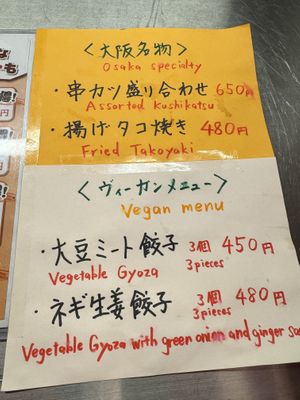 <大阪名物>
Osaka specialty
・串カツ盛り合わせ 650円
Assorted Kushikatsu
・揚げタコ焼き 480円
Fried Takoyaki
<ヴィーガンメニュー>
Vegan menu
・大豆ミート餃子 3個 450円
Vegetable Gyoza 3pieces
・ネギ生姜餃子 3個 480円
3pieces
Vegetable Gyoza with green onion and ginger